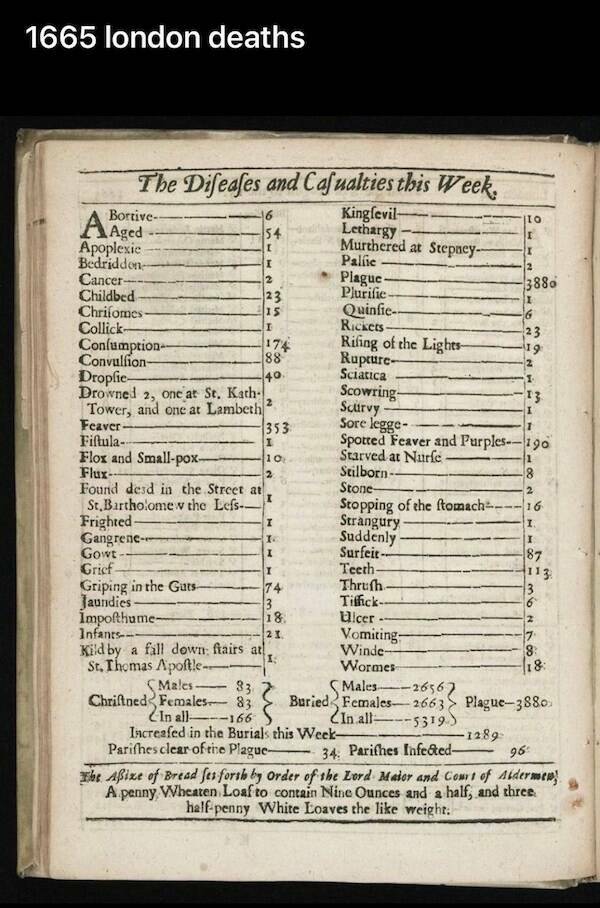 1665 london deaths
The Diſeaſes and Caſualties this Week.
ABortive 6
Aged 54
Apoplexie 1
Bedridden 1
Cancer 2
Childbed 23
Chriſomes 15
Collick 1
Conſumption 174
Convulſion 88
Dropſie 40
Drowned 2, one at St. Kath-
Tower, and one at Lambeth 2
Feaver 353
Fiſtula 1
Flox and Small-pox 10
Flux 2
Found dead in the Street at
St. Bartholomew the Leſs 1
Frighted 1
Gangrene 1
Gowt 1
Grief 1
Griping in the Guts 74
Jaundies 3
Impoſthume 18
Infants 21
Kild by a fall down ſtairs at
St. Thomas Apoſtle 1
Kingſevil 10
Lethargy 1
Murthered at Stepney 1
Palſie 2
Plague 3880
Pluriſie 1
Quinſie 6
Rickets 23
Riſing of the Lights 19
Rupture 2
Sciatica 1
Scowring 13
Scurvy 1
Sore legge 1
Spotted Feaver and Purples 190
Starved at Nurſe 1
Stilborn 8
Stone 2
Stopping of the ſtomach 16
Strangury 1
Suddenly 1
Surfeit 87
Teeth 113
Thruſh 3
Tiſſick 6
Ulcer 2
Vomiting 7
Winde 8
Wormes 18
Males 83 Males 2656
Chriſtned Females 83 Buried Females 2663 Plague 3880
In all 166 In all 5319
Increaſed in the Burials this Week 1289
Pariſhes clear of the Plague 34 Pariſhes Infected 96
The Aſſize of Bread ſet forth by Order of the Lord Maior and Court of Aldermen,
A penny Wheaten Loaf to contain Nine Ounces and a half, and three
half-penny White Loaves the like weight.